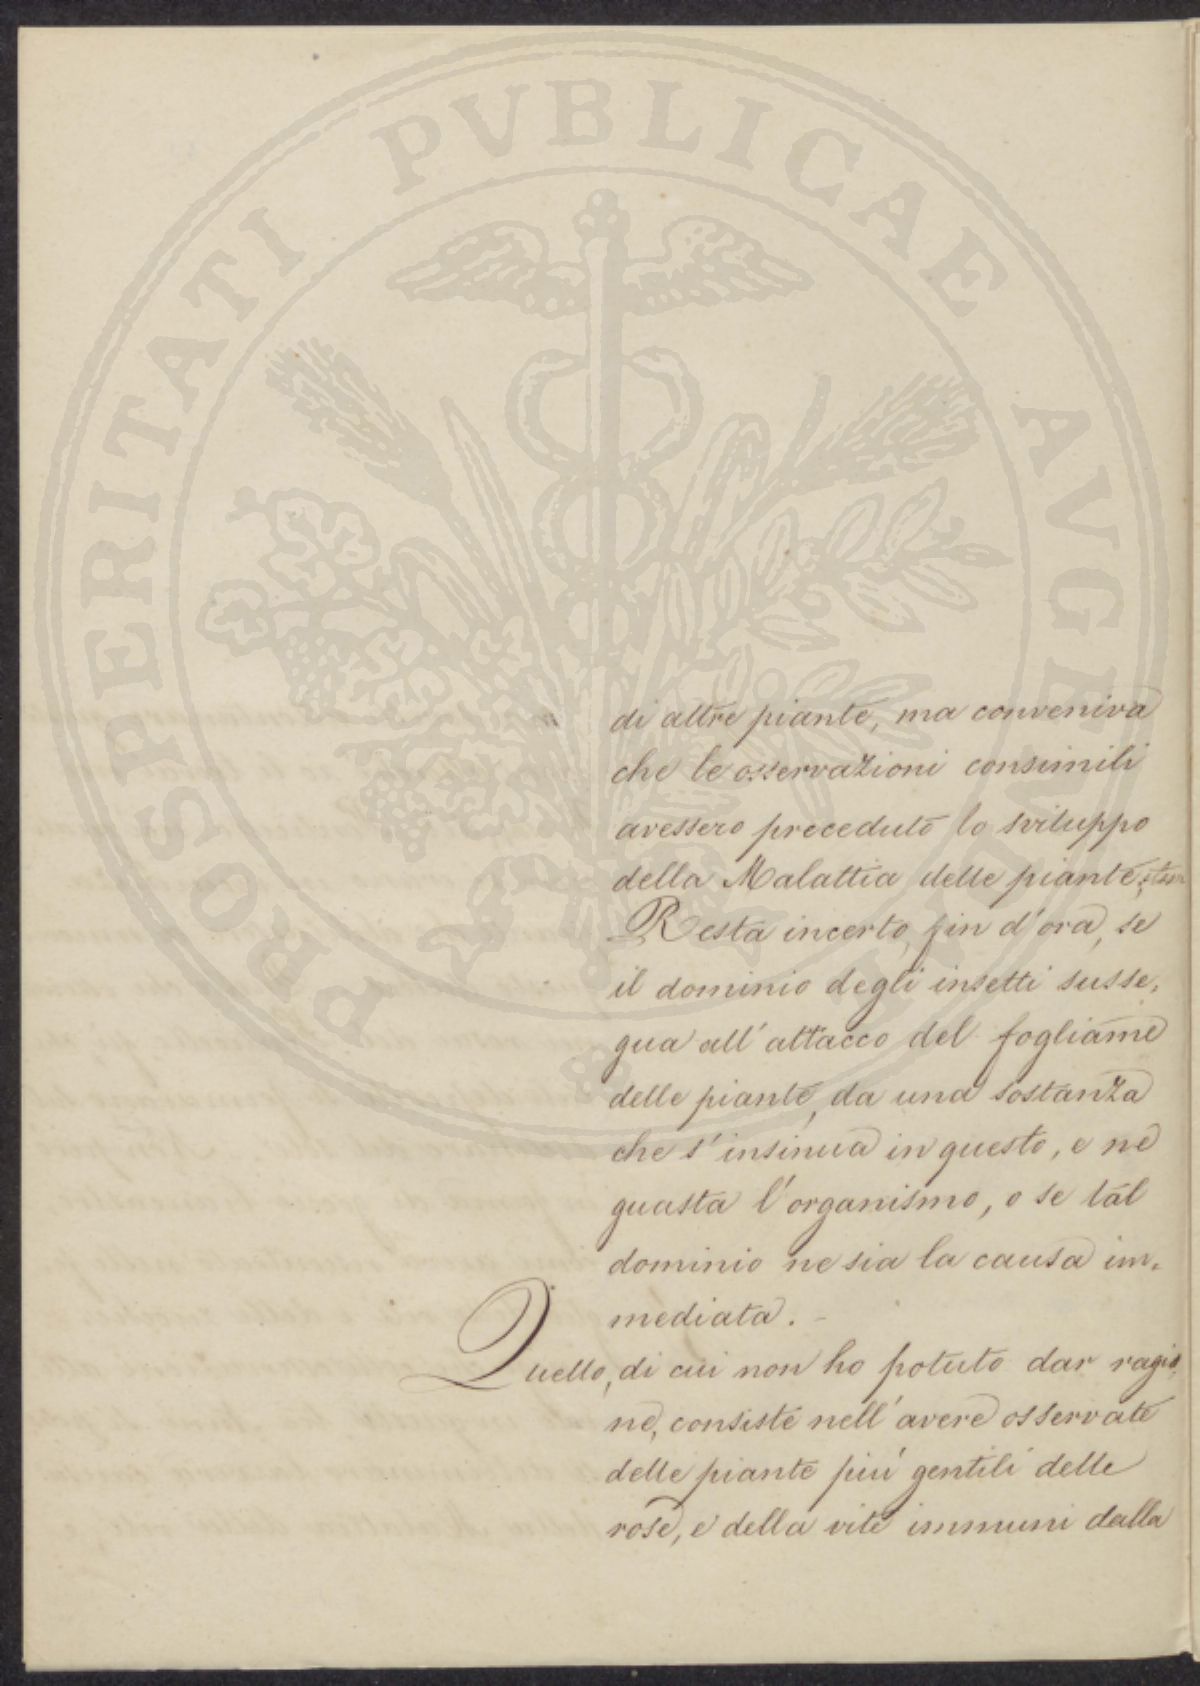 PROSPERITATI PVBLICAE AVGENDAE
di altre piante, ma conveniva
che le osservazioni consimili
avessero preceduto lo sviluppo
della Malattia delle piante
Resta incerto, fin d'ora, se
il dominio degli insetti susse,
gua all'attacco del fogliame
delle piante, da una sostanza
che s'insinua in questo, e ne
guasta l'organismo, o se tal
dominio ne sia la causa im,
mediata. -
Quello, di cui non ho potuto dar ragio,
ne, consiste nell'avere osservate
delle piante più gentili delle
rose, e della vite immuni dalla